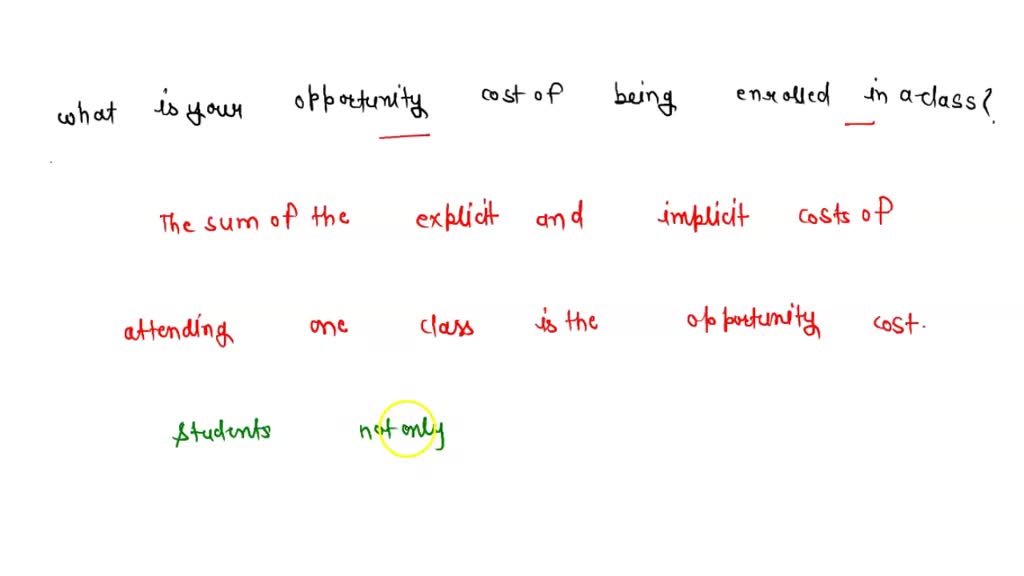 what is your opportunity cost of being enrolled in a class?
The sum of the explicit and implicit costs of
attending one class is the opportunity cost.
students not only